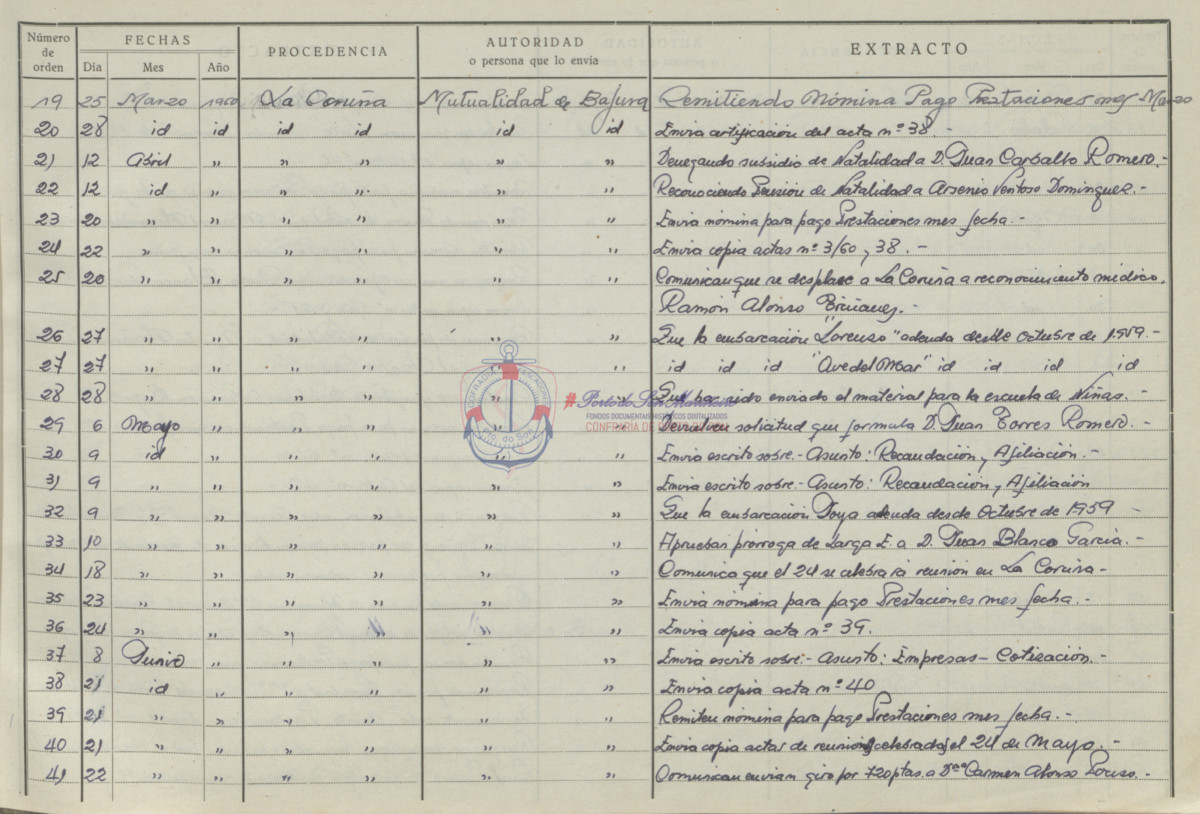 Número de orden FECHAS PROCEDENCIA AUTORIDAD o persona que lo envía EXTRACTO
Día Mes Año
19 25 Marzo 1960 La Coruña Mutualidad de Bajura Remitiendo Nómina Pago Prestaciones mes Marzo
20 28 id id id id id id Envia certificación del acta nº 38 -
21 12 Abril „ „ „ „ „ Denegando subsidio de Natalidad a D. Juan Carballo Romero.-
22 12 id „ „ „ „ „ Reconociendo Pensión de Natalidad a Arsenio Ventoso Dominguez.-
23 20 „ „ „ „ „ „ Envia nómina para pago Prestaciones mes fecha.-
24 22 „ „ „ „ „ „ Envia copia actas nº 3/60 y 38.-
25 20 „ „ „ „ „ „ Comunican que se desplace a La Coruña a reconocimiento médico.
Ramón Alonso
26 27 „ „ „ „ „ „ Que la embarcación "Lorenso" adeuda desde Octubre de 1.959.-
27 27 „ „ „ „ „ „ id id id "Ave del Mar" id id id id
28 28 „ „ „ „ „ „ Que ha sido enviado el material para la escuela de Niñas.-
29 6 Mayo „ „ „ „ „ Devuelven solicitud que formula D. Juan Torres Romero.-
30 9 id „ „ „ „ „ Envia escrito sobre.- Asunto: Recaudación y Afiliación.-
31 9 „ „ „ „ „ „ Envia escrito sobre.- Asunto: Recaudación y Afiliación
32 9 „ „ „ „ „ „ Que la embarcación Joya adeuda desde Octubre de 1959 -
33 10 „ „ „ „ „ „ Aprueban prorroga de Larga E. a D. Juan Blanco Garcia.-
34 18 „ „ „ „ „ „ Comunica que el 24 se celebrará reunión en La Coruña-
35 23 „ „ „ „ „ „ Envia nómina para pago Prestaciones mes fecha.-
36 24 „ „ „ „ „ „ Envia copia acta nº 39.
37 8 Junio „ „ „ „ „ Envia escrito sobre.- Asunto: Empresas- Cotización.-
38 21 id „ „ „ „ „ Envia copia acta nº 40
39 21 „ „ „ „ „ „ Remiten nómina para pago Prestaciones mes fecha.-
40 21 „ „ „ „ „ „ Envia copia actas de reunion celebrada el 24 de Mayo.-
41 22 „ „ „ „ „ „ Comunican envian giro por 720 ptas. a Dña Carmen Alonso
COFRADIA PESCADORES
Pto. do Son
FONDOS DOCUMENTAIS HISTÓRICOS DIXITALIZADOS